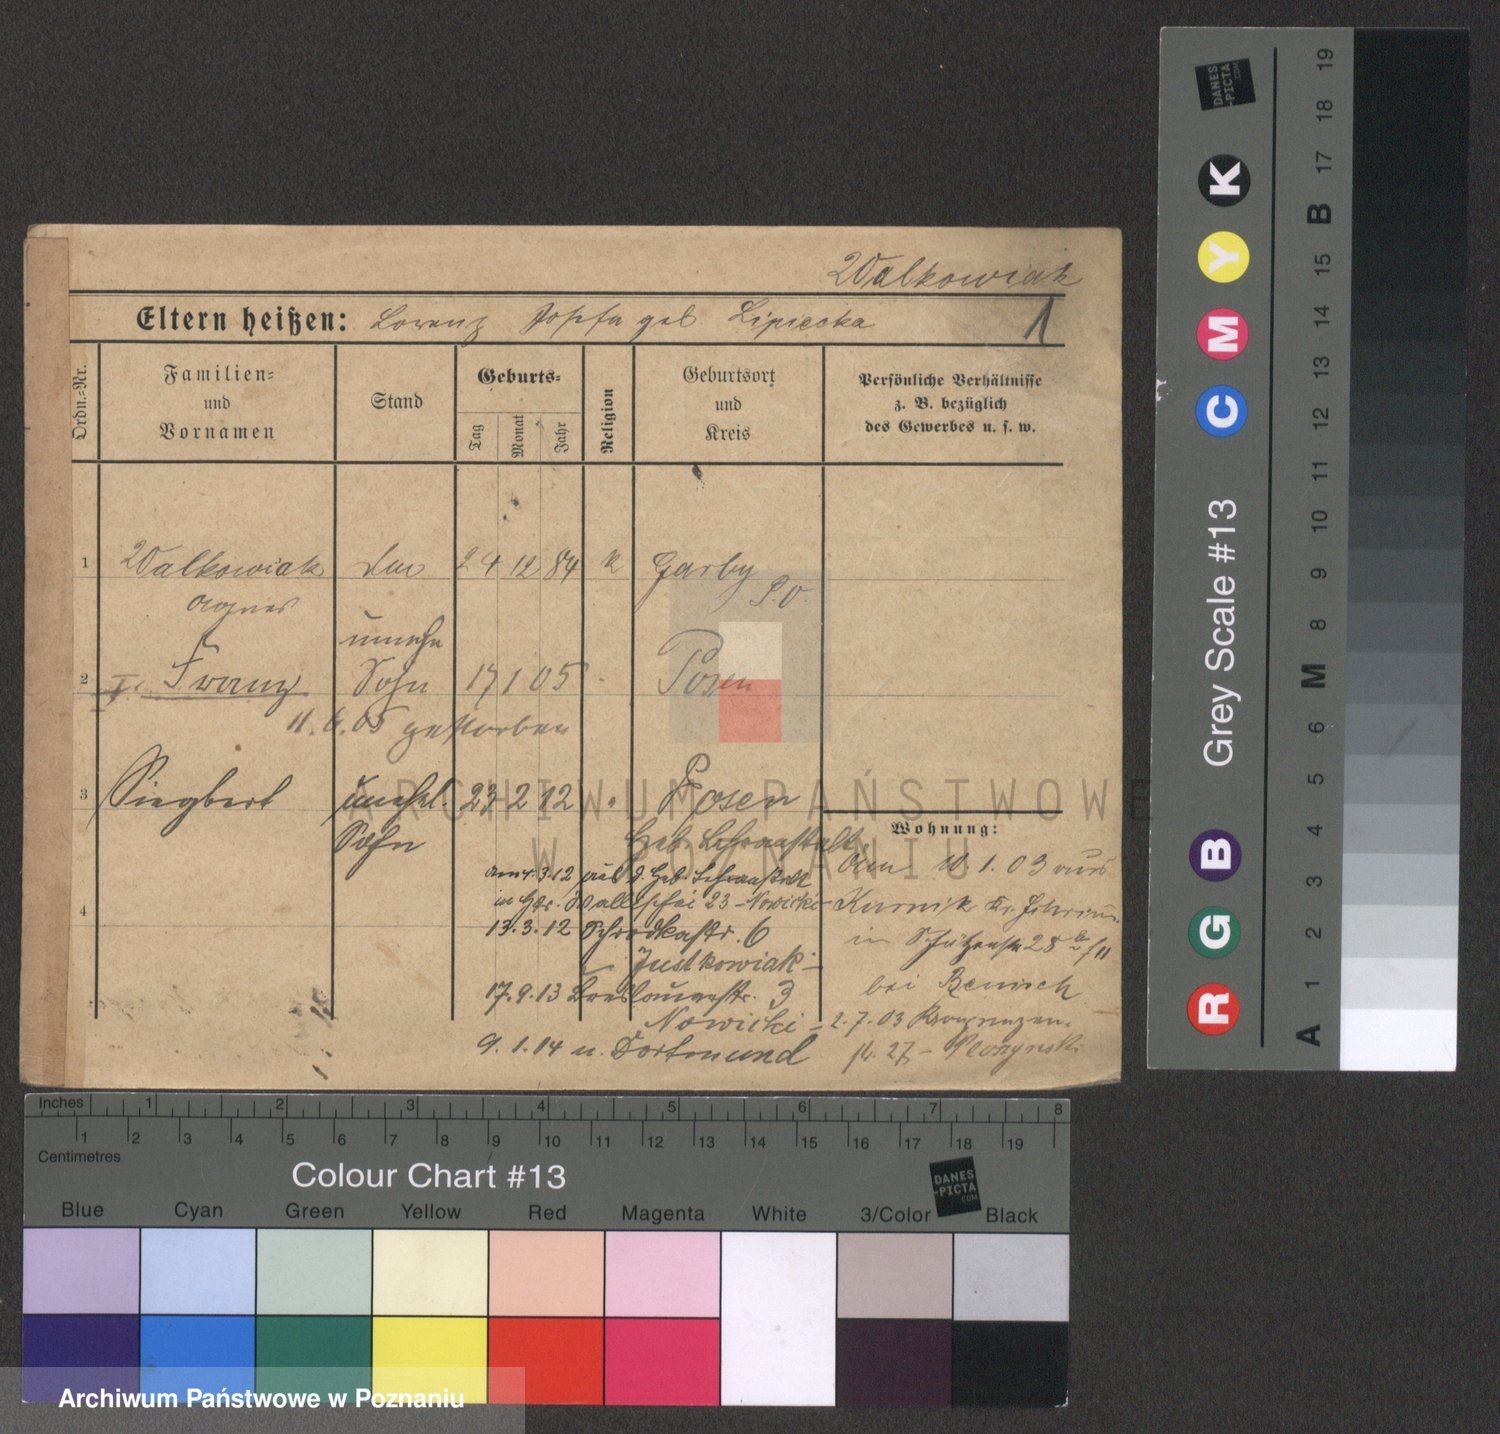 Walkowiak
Eltern heißen: Lorenz Josefa geb Lipiecka
1
Ordn.-Nr.
Familien-
und
Vornamen
Stand
Geburts-
Tag
Monat
Jahr
Religion
Geburtsort
und
Kreis
Persönliche Verhältnisse
z. B. bezüglich
des Gewerbes u. s. w.
1 Walkowiak 24 12 84 k Garby
Agnes S.O.
unehe
2 Franz Sohn 17 1 05 Posen
11.6.05 gestorben
3 Siegbert unehel. 23 2 12 Posen
Sohn Geb. Lehranstalt
Wohnung:
Am 10.1.03 aus
am 4.3.12 aus d. Geb. Lehranstalt
in Wallischei 23 - Nowicki - Kurnik Kr. Schrimm
4
13.3.12 Schrodkastr. 6
in Schützenstr 28
Justkowiak -
bei Remisch
17.9.13 Breslauerstr. 3
Nowicki - 2.7.03 Kronprinzen-
9.1.14 n. Dortmund
str. 27 -
ARCHIWUM PAŃSTWOWE
W POZNANIU
DANES
-PICTA
.COM
K Y M C B G R
Grey Scale #13
A 1 2 3 4 5 6 M 8 9 10 11 12 13 14 15 B 17 18 19
Inches 1 2 3 4 5 6 7 8
1 2 3 4 5 6 7 8 9 10 11 12 13 14 15 16 17 18 19
Centimetres
Colour Chart #13
DANES
-PICTA
.COM
Blue Cyan Green Yellow Red Magenta White 3/Color Black
Archiwum Państwowe w Poznaniu